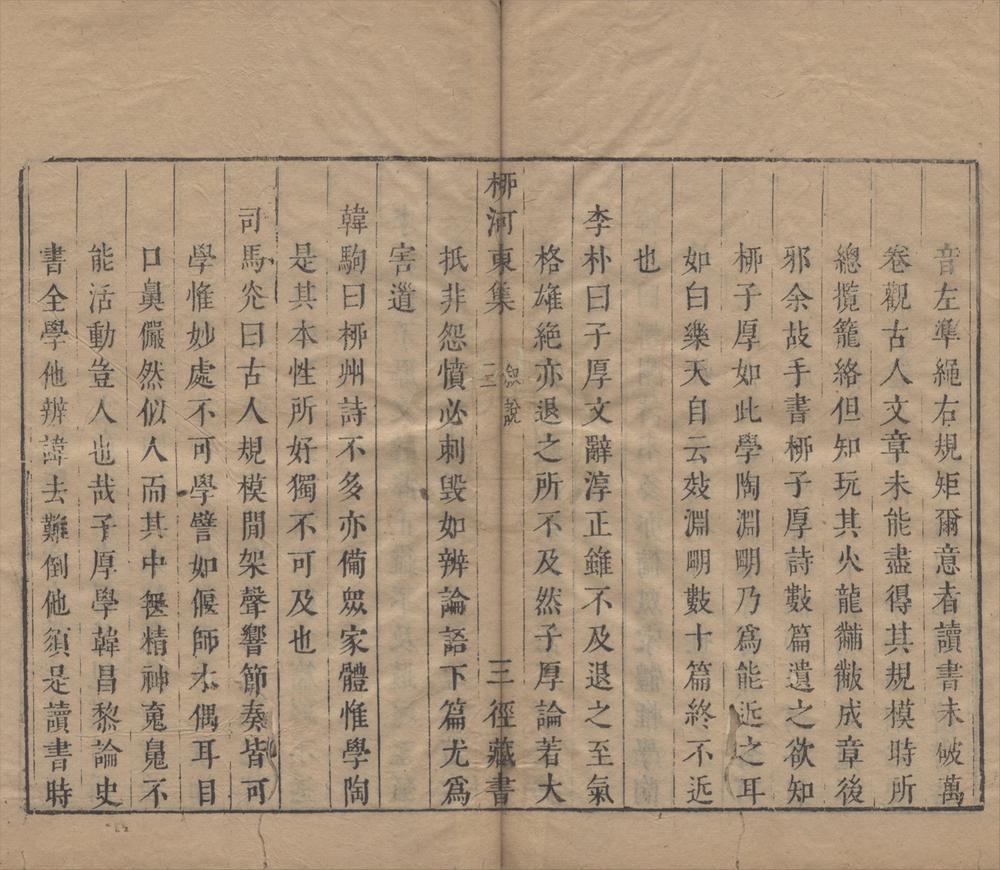 音左準繩右規矩爾意者讀書未破萬
卷觀古人文章未能盡得其規模時所
總攬籠絡但知玩其火龍黼黻成章後
邪余故手書柳子厚詩數篇遺之欲知
柳子厚如此學陶淵明乃爲能近之耳
如白樂天自云效淵明數十篇終不近
也
李朴曰子厚文辭淳正雖不及退之至氣
格雄絶亦退之所不及然子厚論若大
柳河東集 敘說 三 三徑藏書
抵非怨憤必刺毀如辨論語下篇尤爲
害道
韓駒曰柳州詩不多亦備眾家體惟學陶
是其本性所好獨不可及也
司馬光曰古人規模閒架聲響節奏皆可
學惟妙處不可學譬如偃師木偶耳目
口鼻儼然似人而其中無精神䰟䰟不
能活動豈人也哉子厚學韓昌黎論史
書全學他辨諱去難倒他須是讀書時